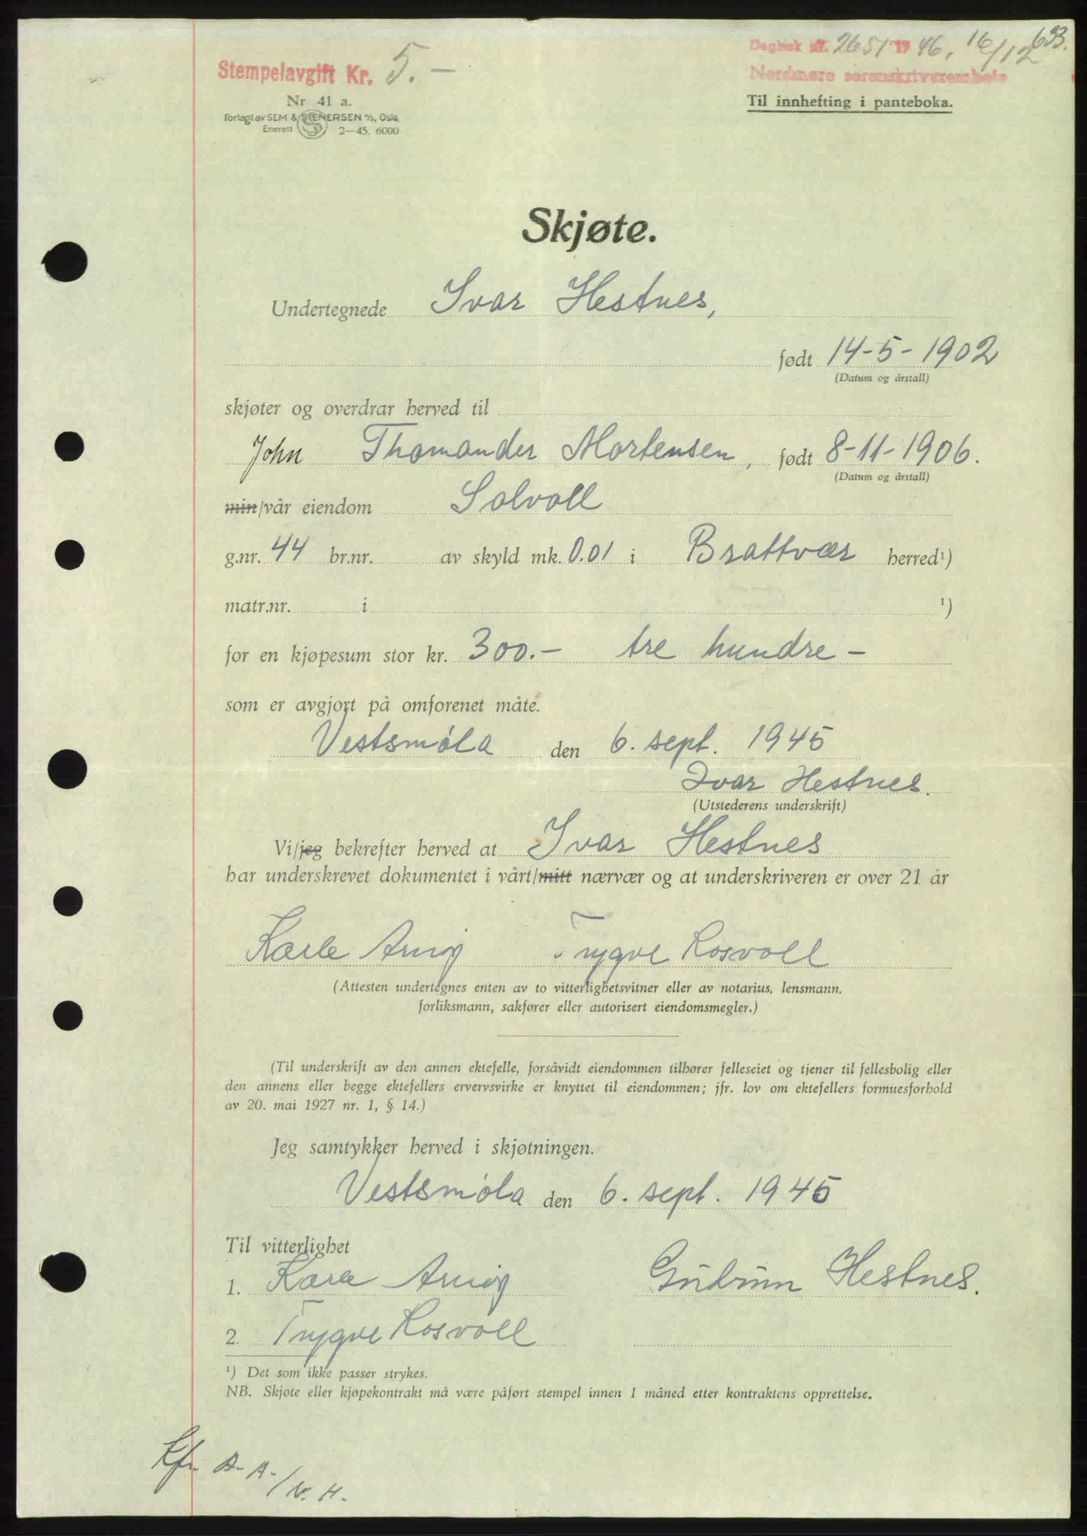 Dagbok nr. 2651 1946. 16/12 653.
Stempelavgift Kr. 5.—
Nordmøre sorenskriverembete
Nr. 41 a.
Til innhefting i panteboka.
Forlagt av SEM & STENERSEN A/S, Oslo
Enerett 2—45. 6000
Skjøte.
Undertegnede Ivar Hestnes,
født 14-5-1902
(Datum og årstall)
skjøter og overdrar herved til
John Thomander Mortensen, født 8-11-1906.
(Datum og årstall)
min/vår eiendom Solvoll
g.nr. 44 br.nr. av skyld mk. 0.01 i Brattvær herred¹)
matr.nr. i ¹)
for en kjøpesum stor kr. 300.— tre hundre —
som er avgjort på omforenet måte.
Vestsmøla den 6. sept. 1945
Ivar Hestnes.
(Utstederens underskrift)
Vi/jeg bekrefter herved at Ivar Hestnes
har underskrevet dokumentet i vårt/mitt nærvær og at underskriveren er over 21 år
Kåre Arnøy Trygve Rosvoll
(Attesten undertegnes enten av to vitterlighetsvitner eller av notarius, lensmann,
forliksmann, sakfører eller autorisert eiendomsmegler.)
(Til underskrift av den annen ektefelle, forsåvidt eiendommen tilhører felleseiet og tjener til fellesbolig eller
den annens eller begge ektefellers ervervsvirke er knyttet til eiendommen; jfr. lov om ektefellers formuesforhold
av 20. mai 1927 nr. 1, § 14.)
Jeg samtykker herved i skjøtningen.
Vestsmøla den 6. sept. 1945
Til vitterlighet
1. Kåre Arnøy Gudrun Hestnes.
2. Trygve Rosvoll
¹) Det som ikke passer strykes.
NB. Skjøte eller kjøpekontrakt må være påført stempel innen 1 måned etter kontraktens opprettelse.